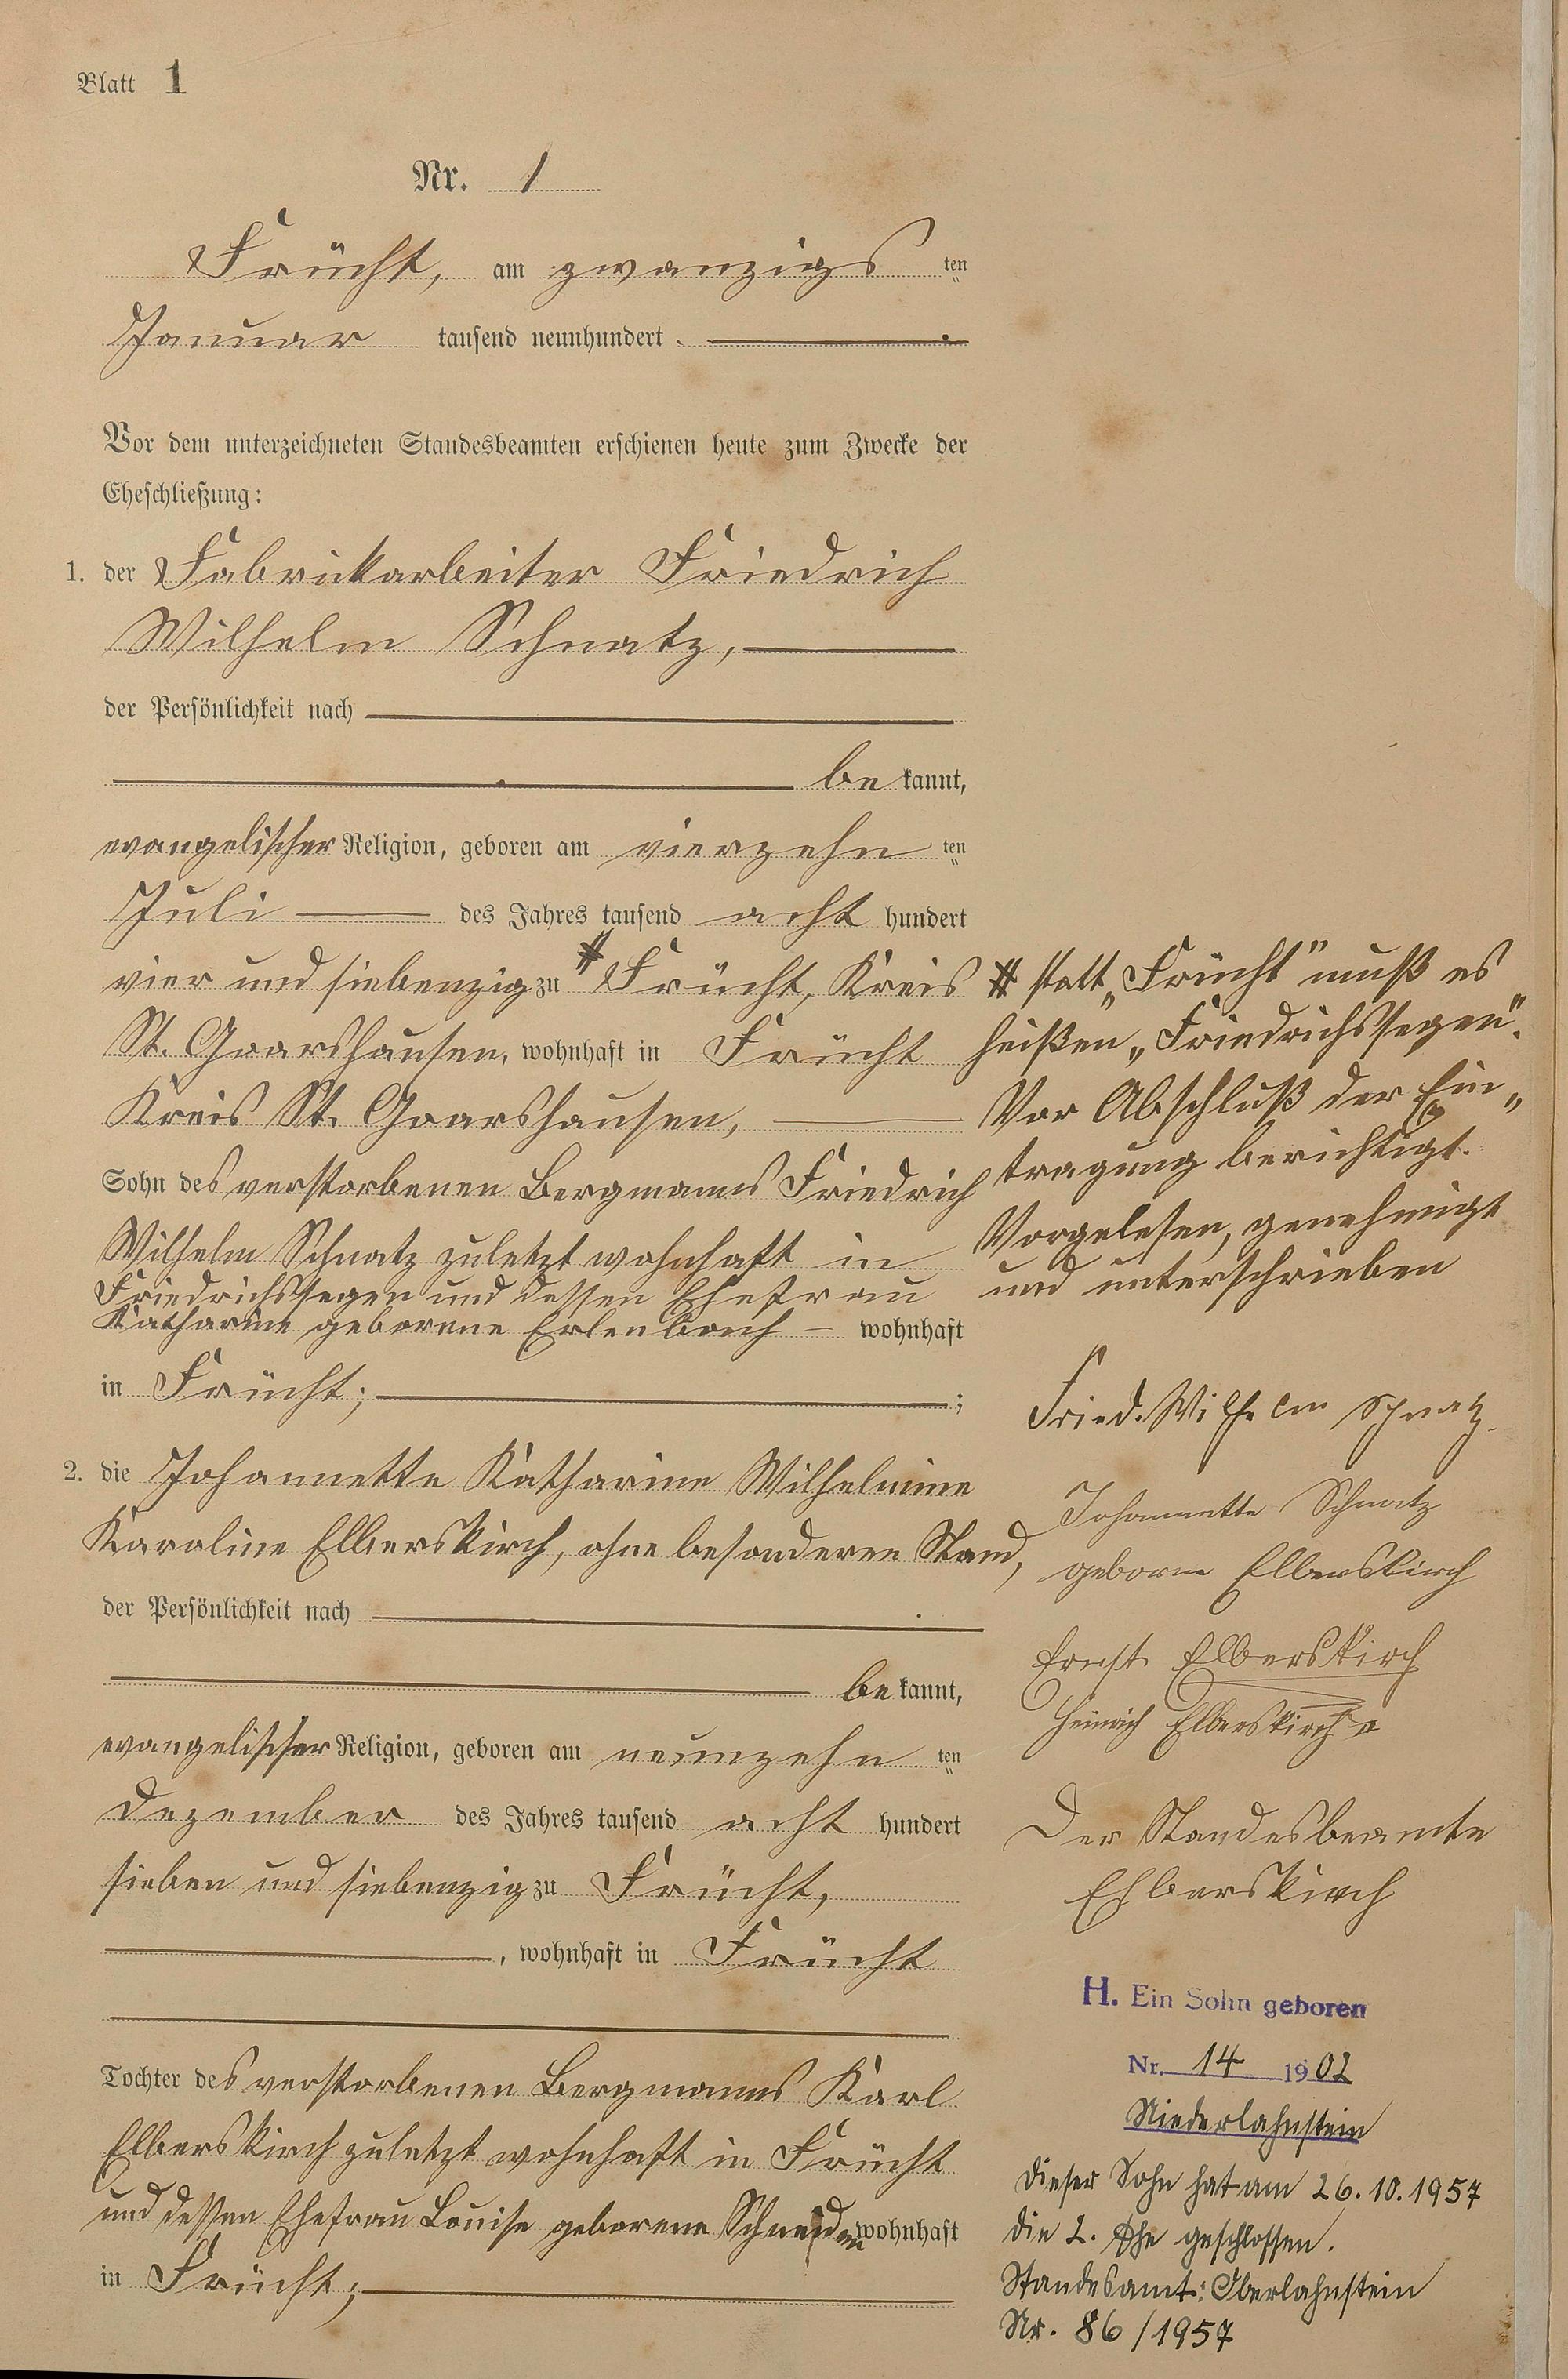 Blatt 1
Nr. 1
Frücht, am zwanzigs ten
Januar tausend neunhundert.
Vor dem unterzeichneten Standesbeamten erschienen heute zum Zwecke der
Eheschließung:
1. der Fabrickarbeiter Friedrich
Wilhelm Schnatz,
der Persönlichkeit nach
be kannt,
evangelischer Religion, geboren am vierzehn ten
Juli des Jahres tausend acht hundert
vier und siebenzig zu # Frücht, Kreis
St. Goarshausen, wohnhaft in Frücht
Kreis St. Goarshausen,
Sohn des verstorbenen Bergmanns Friedrich
Wilhelm Schnatz zuletzt wohnhaft in
Friedrichssegen und dessen Ehefrau
Katharine geborene Erlenbach – wohnhaft
in Frücht; ;
2. die Johannette Katharine Wilhelmine
Karoline Elberskirch, ohne besonderen Stand,
der Persönlichkeit nach
be kannt,
evangelischer Religion, geboren am neunzehn ten
Dezember des Jahres tausend acht hundert
sieben und siebenzig zu Frücht,
, wohnhaft in Frücht
Tochter des verstorbenen Bergmanns Karl
Elberskirch zuletzt wohnhaft in Frücht
und dessen Ehefrau Louise geborene wohnhaft
in Frücht;
# statt „Frücht" muß es
heißen „Friedrichssegen".
Vor Abschluß der Ein„
tragung berichtigt.
Vorgelesen, genehmigt
und unterschrieben
Fried. Wilhelm Schnatz.
Johannette Schnatz
geborne Elberskirch
Ernst Elberskirch
Heinrich Elberskirch
Der Standesbeamte
Elberskirch
H. Ein Sohn geboren
Nr. 14 1902
Niederlahnstein
Dieser Sohn hat am 26.10.1957
die 2. Ehe geschlossen.
Standesamt: Oberlahnstein
Nr. 86/1957